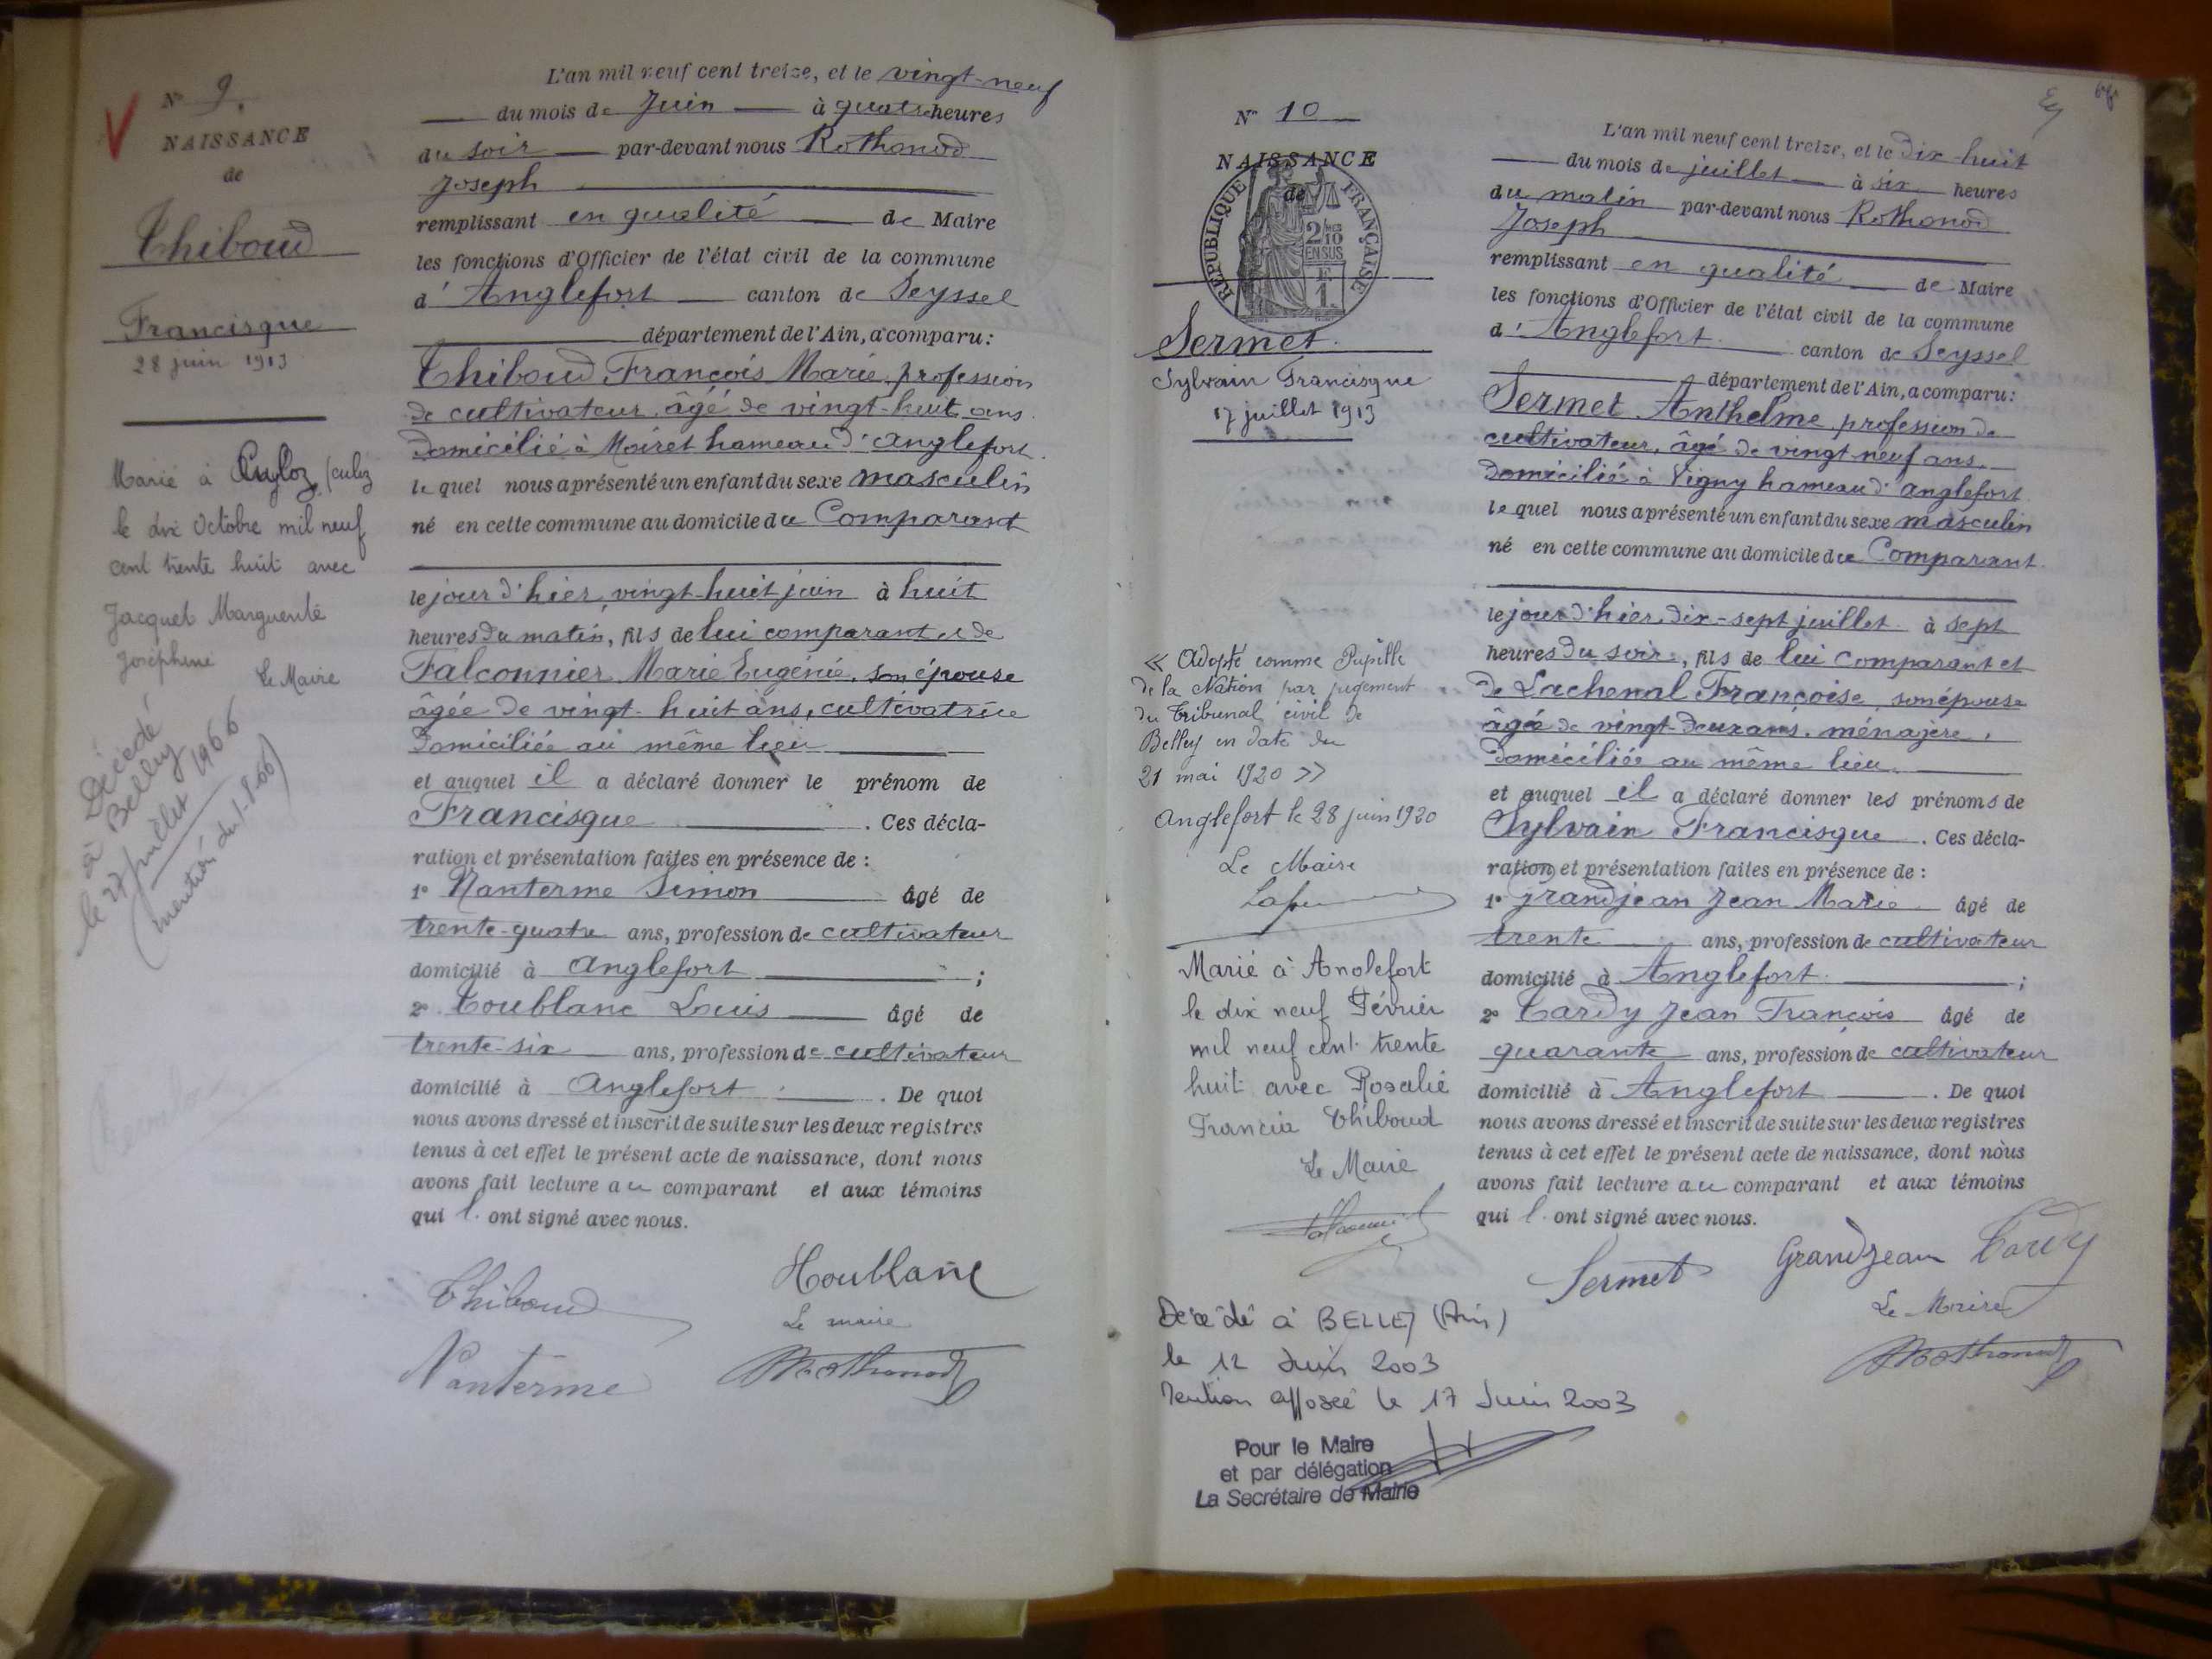 N° 9.
NAISSANCE
de
Thiboud
Francisque
28 juin 1913
Marié à Culoz (culoz
le dix Octobre mil neuf
cent trente huit avec
Jacquet Marguerite
Joséphine
Le Maire
Décédé
à Belley
le 27 juillet 1966
(mention du 1-8-66)
L'an mil neuf cent treize, et le vingt-neuf
du mois de Juin à quatre heures
du soir par-devant nous Rothonod
Joseph
remplissant en qualité de Maire
les fonctions d'Officier de l'état civil de la commune
d'Anglefort canton de Seyssel
département de l'Ain, a comparu :
Thiboud François Marie, profession
de cultivateur, âgé de vingt-huit ans
domicilié à Moiret hameau d'anglefort.
le quel nous a présenté un enfant du sexe masculin
né en cette commune au domicile du Comparant
le jour d'hier, vingt-huit juin à huit
heures du matin, fils de lui comparant et de
Falconnier Marie Eugénie, son épouse
âgée de vingt-huit ans, cultivatrice
domiciliée au même lieu
et auquel il a déclaré donner le prénom de
Francisque . Ces décla-
ration et présentation faites en présence de :
1° Nanterme Simon âgé de
trente-quatre ans, profession de cultivateur
domicilié à Anglefort ;
2° Houblanc Louis âgé de
trente-six ans, profession de cultivateur
domicilié à Anglefort . De quoi
nous avons dressé et inscrit de suite sur les deux registres
tenus à cet effet le présent acte de naissance, dont nous
avons fait lecture au comparant et aux témoins
qui l'ont signé avec nous.
Thiboud
Houblanc
Le maire
Nanterme
Rothonod
N° 10
NAISSANCE
de
RÉPUBLIQUE FRANÇAISE
2/10
EN SUS
E
1.
Sermet
Sylvain Francisque
17 juillet 1913
« Adopté comme Pupille
de la Nation par jugement
du Tribunal civil de
Belley en date du
21 mai 1920 »
Anglefort le 28 juin 1920
Le Maire
Marié à Anglefort
le dix neuf Février
mil neuf cent trente
huit avec Rosalie
Francia Thiboud
Le Maire
Décédé à BELLEY (Ain)
le 12 Juin 2003
Mention apposée le 17 Juin 2003
Pour le Maire
et par délégation
La Secrétaire de Mairie
L'an mil neuf cent treize, et le dix-huit
du mois de juillet à six heures
du matin par-devant nous Rothonod
Joseph
remplissant en qualité de Maire
les fonctions d'Officier de l'état civil de la commune
d'Anglefort canton de Seyssel
département de l'Ain, a comparu :
Sermet Anthelme, profession de
cultivateur, âgé de vingt-neuf ans
domicilié à Vigny hameau d'anglefort
le quel nous a présenté un enfant du sexe masculin
né en cette commune au domicile du Comparant.
le jour d'hier, dix-sept juillet à sept
heures du soir, fils de lui comparant et
de Lachenal Françoise, son épouse
âgée de vingt-deux ans, ménagère,
domiciliée au même lieu
et auquel il a déclaré donner les prénoms de
Sylvain Francisque . Ces décla-
ration et présentation faites en présence de :
1° Grandjean Jean Marie âgé de
trente ans, profession de cultivateur
domicilié à Anglefort ;
2° Tardy Jean François âgé de
quarante ans, profession de cultivateur
domicilié à Anglefort . De quoi
nous avons dressé et inscrit de suite sur les deux registres
tenus à cet effet le présent acte de naissance, dont nous
avons fait lecture au comparant et aux témoins
qui l'ont signé avec nous.
Sermet Grandjean Tardy
Le Maire
Rothonod